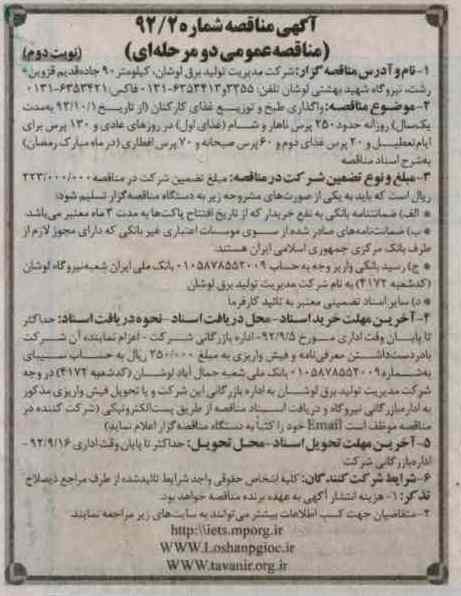 آگهی مناقصه شماره ۹۲/۲
(مناقصه عمومی دو مرحله‌ای) (نوبت دوم)
۱-نام و آدرس مناقصه گزار: شرکت مدیریت تولید برق لوشان، کیلومتر ۹۰ جاده قدیم قزوین-
رشت، نیروگاه شهید بهشتی لوشان تلفن: ۳۳۵۵و۶۳۵۳۴۱۳-۰۱۳۱ فاکس: ۶۳۵۳۴۲۱-۰۱۳۱
۲-موضوع مناقصه: واگذاری طبخ و توزیع غذای کارکنان (از تاریخ ۹۲/۱۰/۱ به‌مدت
یک‌سال) روزانه حدود ۲۵۰ پرس ناهار و شام (غذای اول) در روزهای عادی و ۱۳۰ پرس برای
ایام تعطیل و ۲۰ پرس غذای دوم و ۶۰ پرس صبحانه و ۷۰ پرس افطاری (در ماه مبارک رمضان)
به‌شرح اسناد مناقصه
۳-مبلغ و نوع تضمین شرکت در مناقصه: مبلغ تضمین شرکت در مناقصه ۲۲۳/۰۰۰/۰۰۰
ریال است که باید به یکی از صورت‌های مشروحه زیر به دستگاه مناقصه‌گزار تسلیم شود:
* الف) ضمانتنامه بانکی به نفع خریدار که از تاریخ افتتاح پاکت‌ها به مدت ۳ ماه معتبر می‌باشد.
* ب) ضمانت‌نامه‌های صادر شده از سوی موسسات اعتباری غیر بانکی که دارای مجوز لازم از
طرف بانک مرکزی جمهوری اسلامی ایران هستند.
* ج) رسید بانکی واریز وجه به حساب ۰۱۰۵۸۷۸۵۵۲۰۰۹ بانک ملی ایران شعبه نیروگاه لوشان
(کدشعبه ۴۱۷۲) به نام شرکت مدیریت تولید برق لوشان
* د) سایر اسناد تضمینی معتبر به تائید کارفرما
۴-آخرین مهلت خرید اسناد-محل دریافت اسناد- نحوه دریافت اسناد: حداکثر
تا پایان وقت اداری مورخ ۹۲/۹/۵-اداره بازرگانی شرکت - اعزام نماینده آن شرکت
بادردست‌داشتن معرفی‌نامه و فیش واریزی به مبلغ ۲۵۰/۰۰۰ ریال به حساب سیبای
به‌شماره ۰۱۰۵۸۷۸۵۵۲۰۰۹ بانک ملی شعبه جمال آباد لوشان (کدشعبه ۴۱۷۲) در وجه
شرکت مدیریت تولید برق لوشان به اداره بازرگانی این شرکت و یا تحویل فیش واریزی مذکور
به اداره بازرگانی نیروگاه و دریافت اسناد مناقصه از طریق پست‌الکترونیکی (شرکت کننده در
مناقصه موظف است Email خود را کتباً به دستگاه مناقصه‌گزار اعلام نماید)
۵-آخرین مهلت تحویل اسناد-محل تحویل: حداکثر تا پایان وقت اداری ۹۲/۹/۱۶-
اداره بازرگانی شرکت
۶-شرایط شرکت کنندگان: کلیه اشخاص حقوقی واجد شرایط تائیدشده از طرف مراجع ذیصلاح
تذکر: ۱- هزینه انتشار آگهی به عهده برنده مناقصه خواهد بود.
۲-متقاضیان جهت کسب اطلاعات بیشتر می‌توانند به سایت‌های زیر مراجعه نمایند.
http:\\iets.mporg.ir
WWW.Loshanpgioc.ir
WWW.tavanir.org.ir